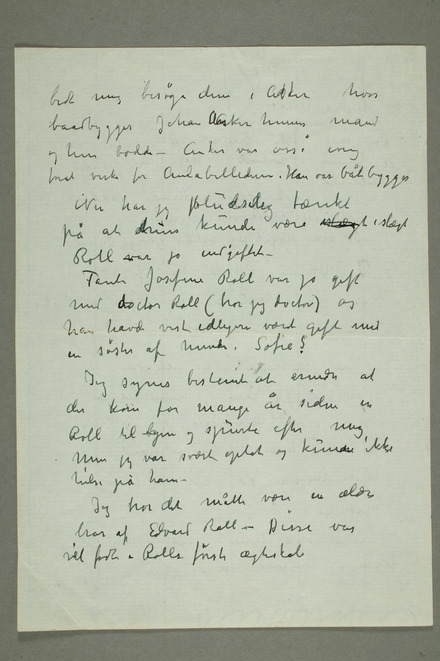 bedt mig besøge dem i Asker hos
baadbygger Johan Anker hennes mand
og hun bodde – Anker var også ivrig
for Aulabillederne. Han var båtbygger
Nu har jeg pludselig tænkt
på at drins kunde være i slægt
Roll var jo indgiftet –
Tante Josefine Roll var jo gift
med doctor Roll (tror jeg doctor) og
han havde vist tidligere vært gift med
en søster af hende. Sofie?
Jeg synes bestemt at erindre at
der kom for mange år siden en
Roll til byen og spurte efter mig
Men jeg var svært optat og kunde ikke
hilse på ham –
Jeg tror det måtte være en ældre
bror af Edvard Roll – Disse var
vel født i Rolls første ægteskab